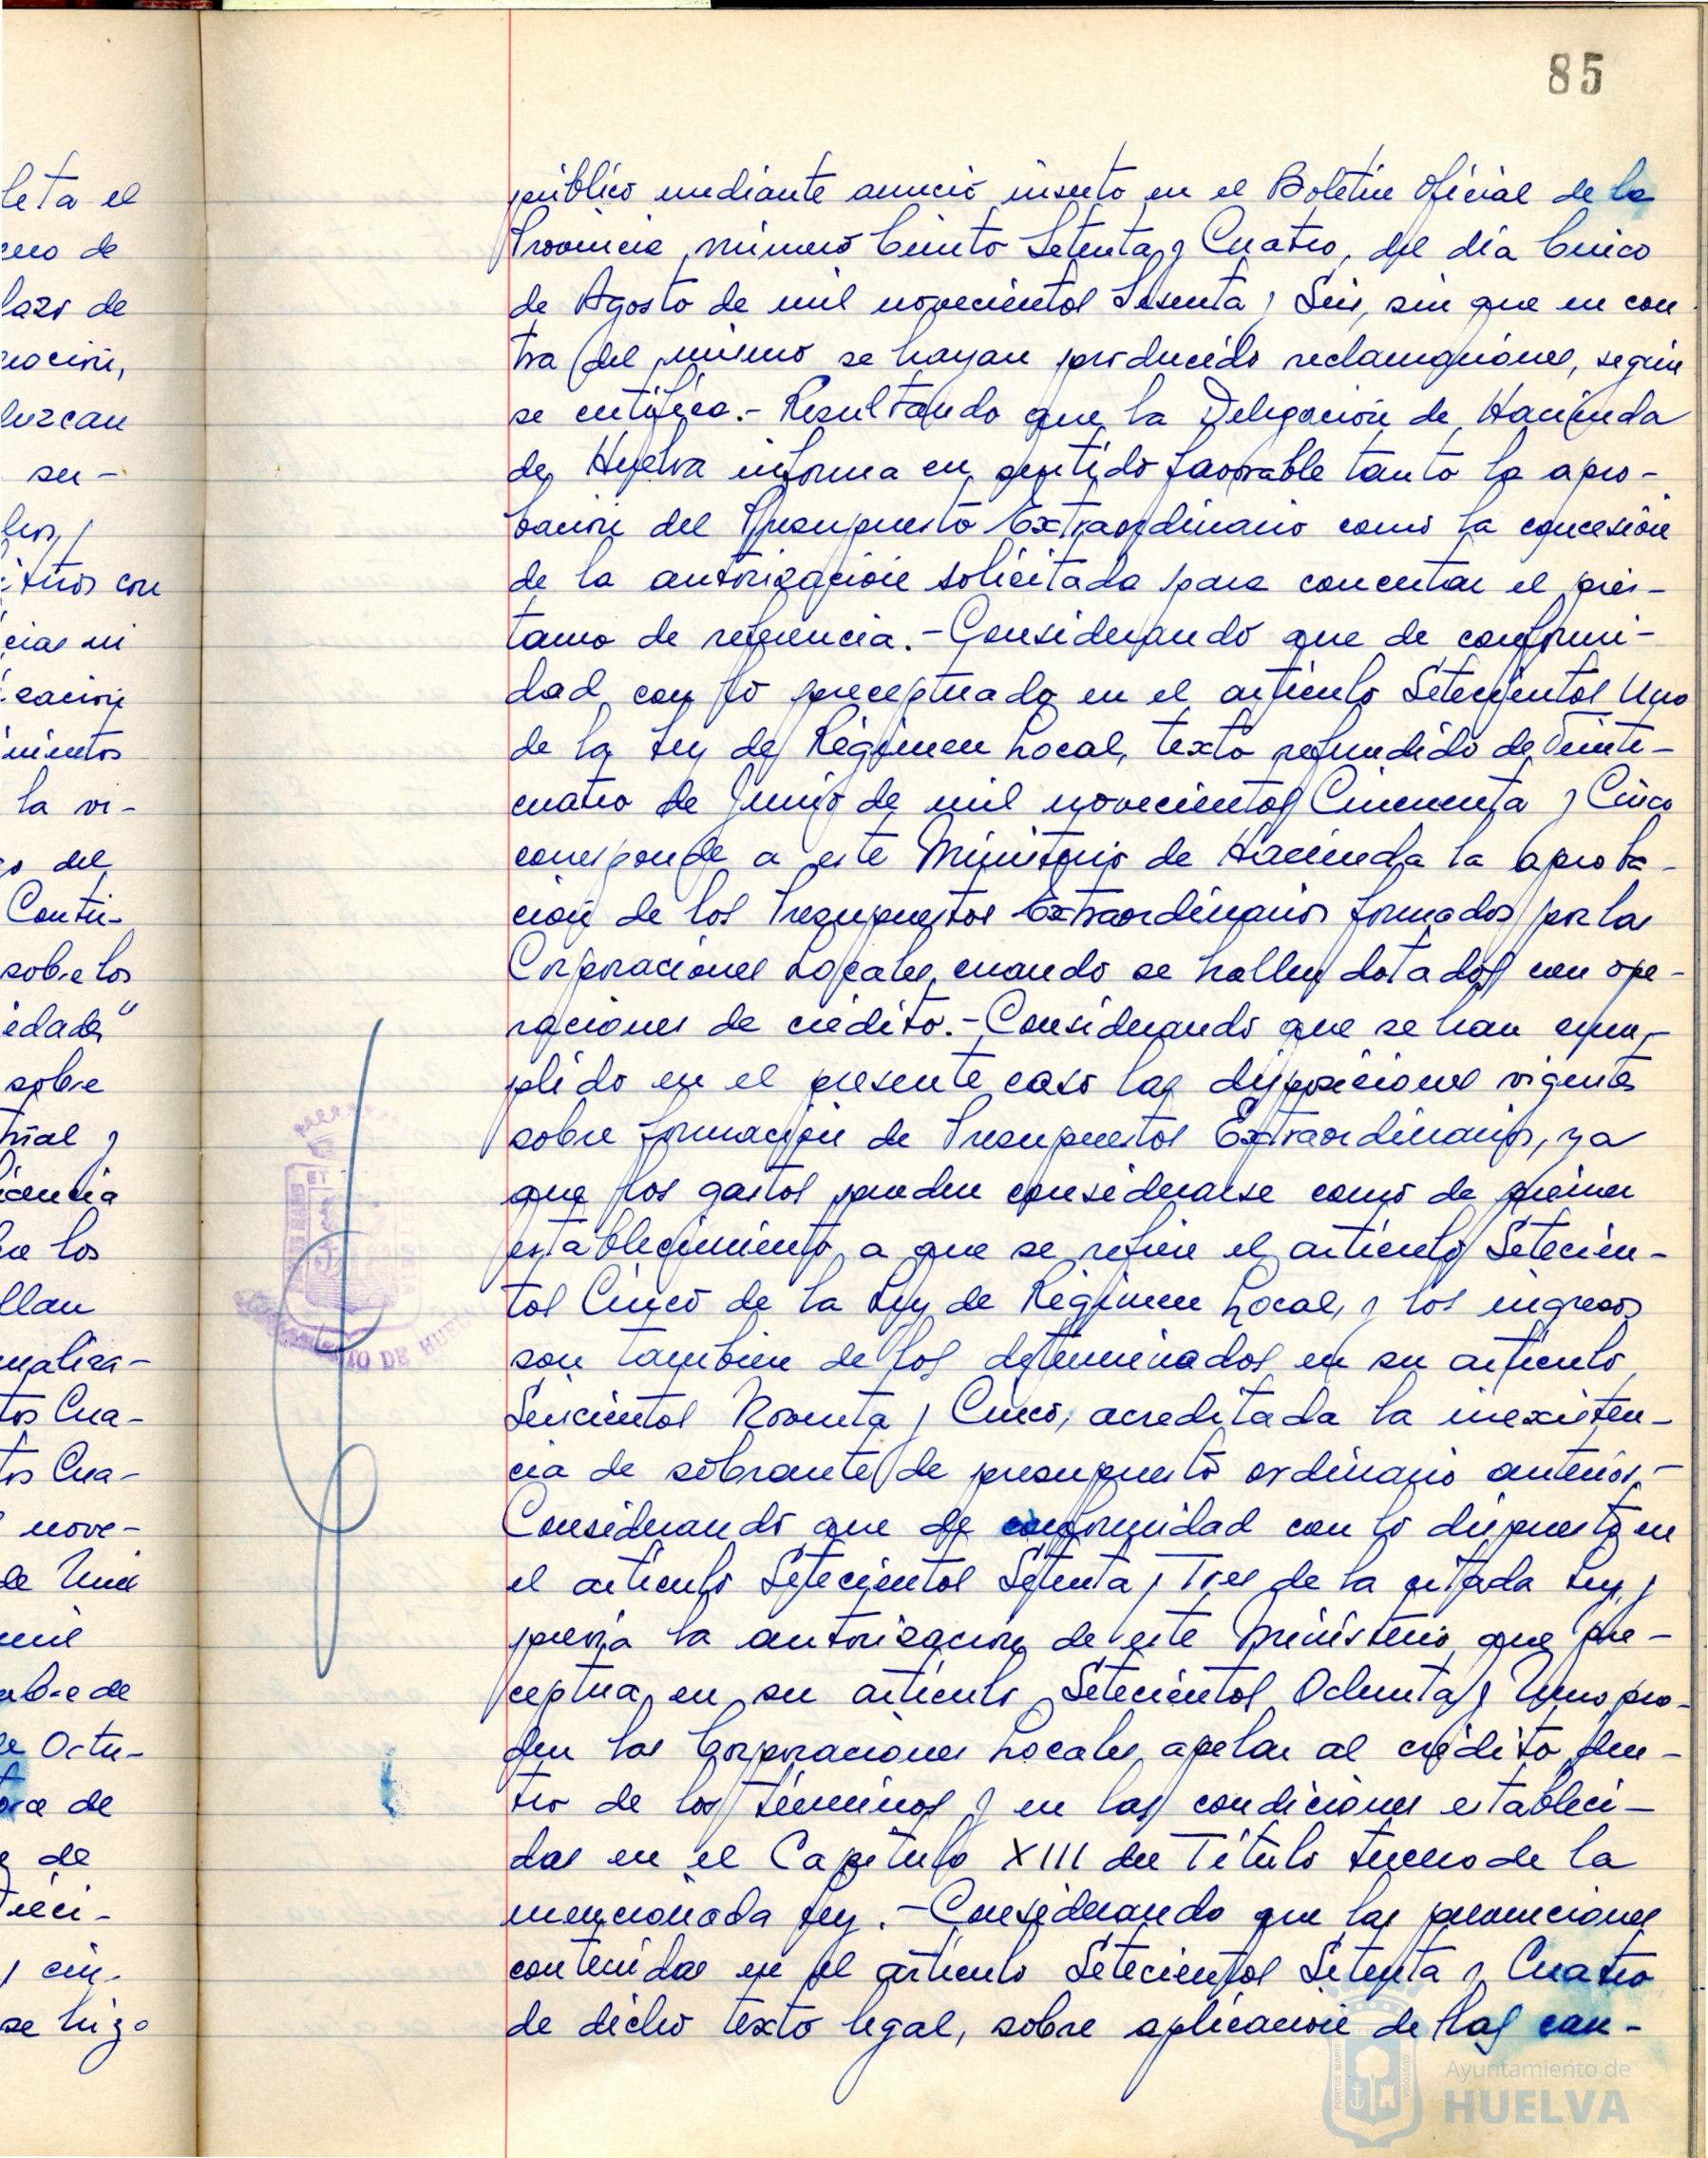 85
público mediante anuncio inserto en el Boletín Oficial de la
Provincia, número Ciento Setenta y Cuatro, del día Cinco
de Agosto de mil novecientos Sesenta y Seis, sin que en con
tra del mismo se hayan producido reclamaciones, según
se certifica.- Resultando que la Delegación de Hacienda
de Huelva informa en sentido favorable tanto la apro-
bación del Presupuesto Extraordinario como la concesión
de la autorización solicitada para concertar el prés-
tamo de referencia.- Considerando que de conformi-
dad con lo preceptuado en el artículo Setecientos Uno
de la Ley de Régimen Local, texto refundido de Veinti-
cuatro de Junio de mil novecientos Cincuenta y Cinco
corresponde a este Ministerio de Hacienda la aproba-
ción de los Presupuestos Extraordinarios formados por las
Corporaciones Locales, cuando se hallen dotados con ope-
raciones de crédito.- Considerando que se han cum-
plido en el presente caso las disposiciones vigentes
sobre formación de Presupuestos Extraordinarios, ya
que los gastos pueden considerarse como de primer
establecimiento, a que se refiere el artículo Setecien-
tos Cinco de la Ley de Régimen Local, y los ingresos
son también de los determinados en su artículo
Seiscientos Noventa y Cinco, acreditada la inexisten-
cia de sobrante de presupuesto ordinario anterior.-
Considerando que de conformidad con lo dispuesto en
el artículo Setecientos Setenta y Tres de la citada Ley, y
previa la autorización de este Ministerio que pre-
ceptua en su artículo Setecientos Ochenta y Uno pro-
den las Corporaciones Locales apelar al crédito den-
tro de los términos y en las condiciones estableci-
das en el Capítulo XIII del Título tercero de la
mencionada Ley.- Considerando que las prevenciones
contenidas en el artículo Setecientos Setenta y Cuatro
de dicho texto legal, sobre aplicación de las can-
leta el
lazo de
luzcan
su-
itios con
cias ni
la vi-
del
Contri-
sobre los
edades"
sobre
rial y
icencia
los
llan
tos Cua-
tos Cua-
nove-
de
bre de
Octu-
de
de
y cin-
se hizo
DE HUEL
Ayuntamiento de
HUELVA